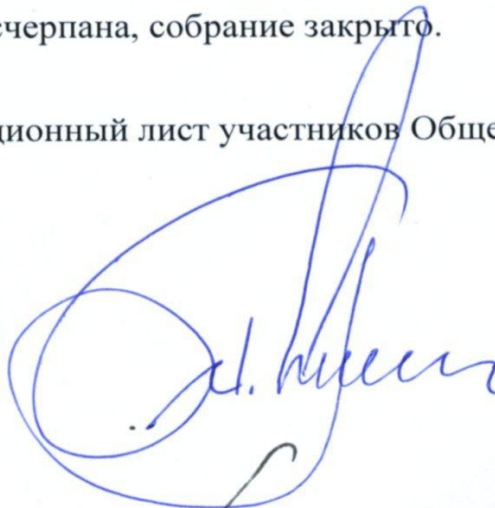 счерпана, собрание закрыто.
ционный лист участников Обще